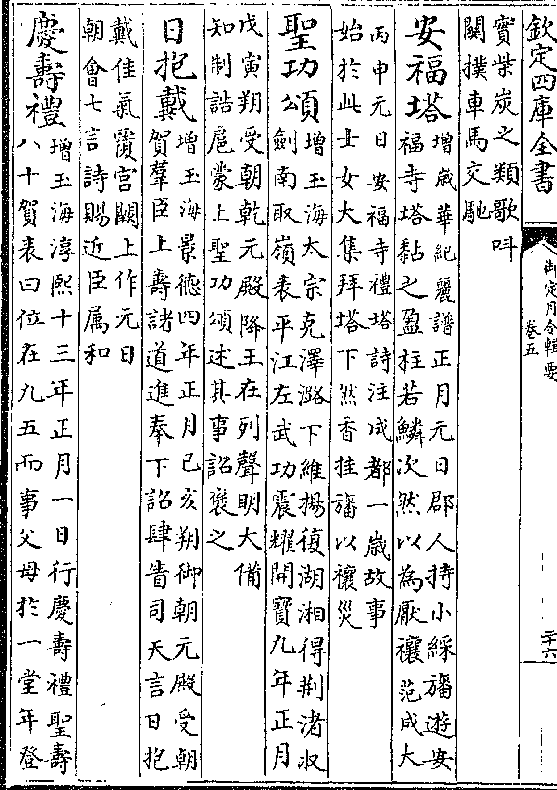 欽定四庫全書
御定月令輯要
卷五
二十六
實柴炭之類歌呌
關撲車馬交馳
安福塔
增歲華紀麗譜正月元日郡人持小綵旛遊安
福寺塔黏之盈柱若鱗次然以為厭禳范成大
丙申元日安福寺禮塔詩注成都一歲故事
始於此士女大集拜塔下然香挂旛以禳災
聖功頌
增玉海太宗克澤潞下維揚復湖湘得荆渚収
劍南取嶺表平江左武功震耀開寶九年正月
戊寅朔受朝乾元殿降王在列聲明大備
知制誥扈蒙上聖功頌述其事詔襃之
日抱戴
增玉海景德四年正月己亥朔御朝元殿受朝
賀羣臣上壽諸道進奉下詔肆眚司天言日抱
戴佳氣覆宫闕上作元日
朝會七言詩賜近臣属和
慶壽禮
增玉海淳熙十三年正月一日行慶壽禮聖壽
八十賀表曰位在九五而事父母於一堂年登